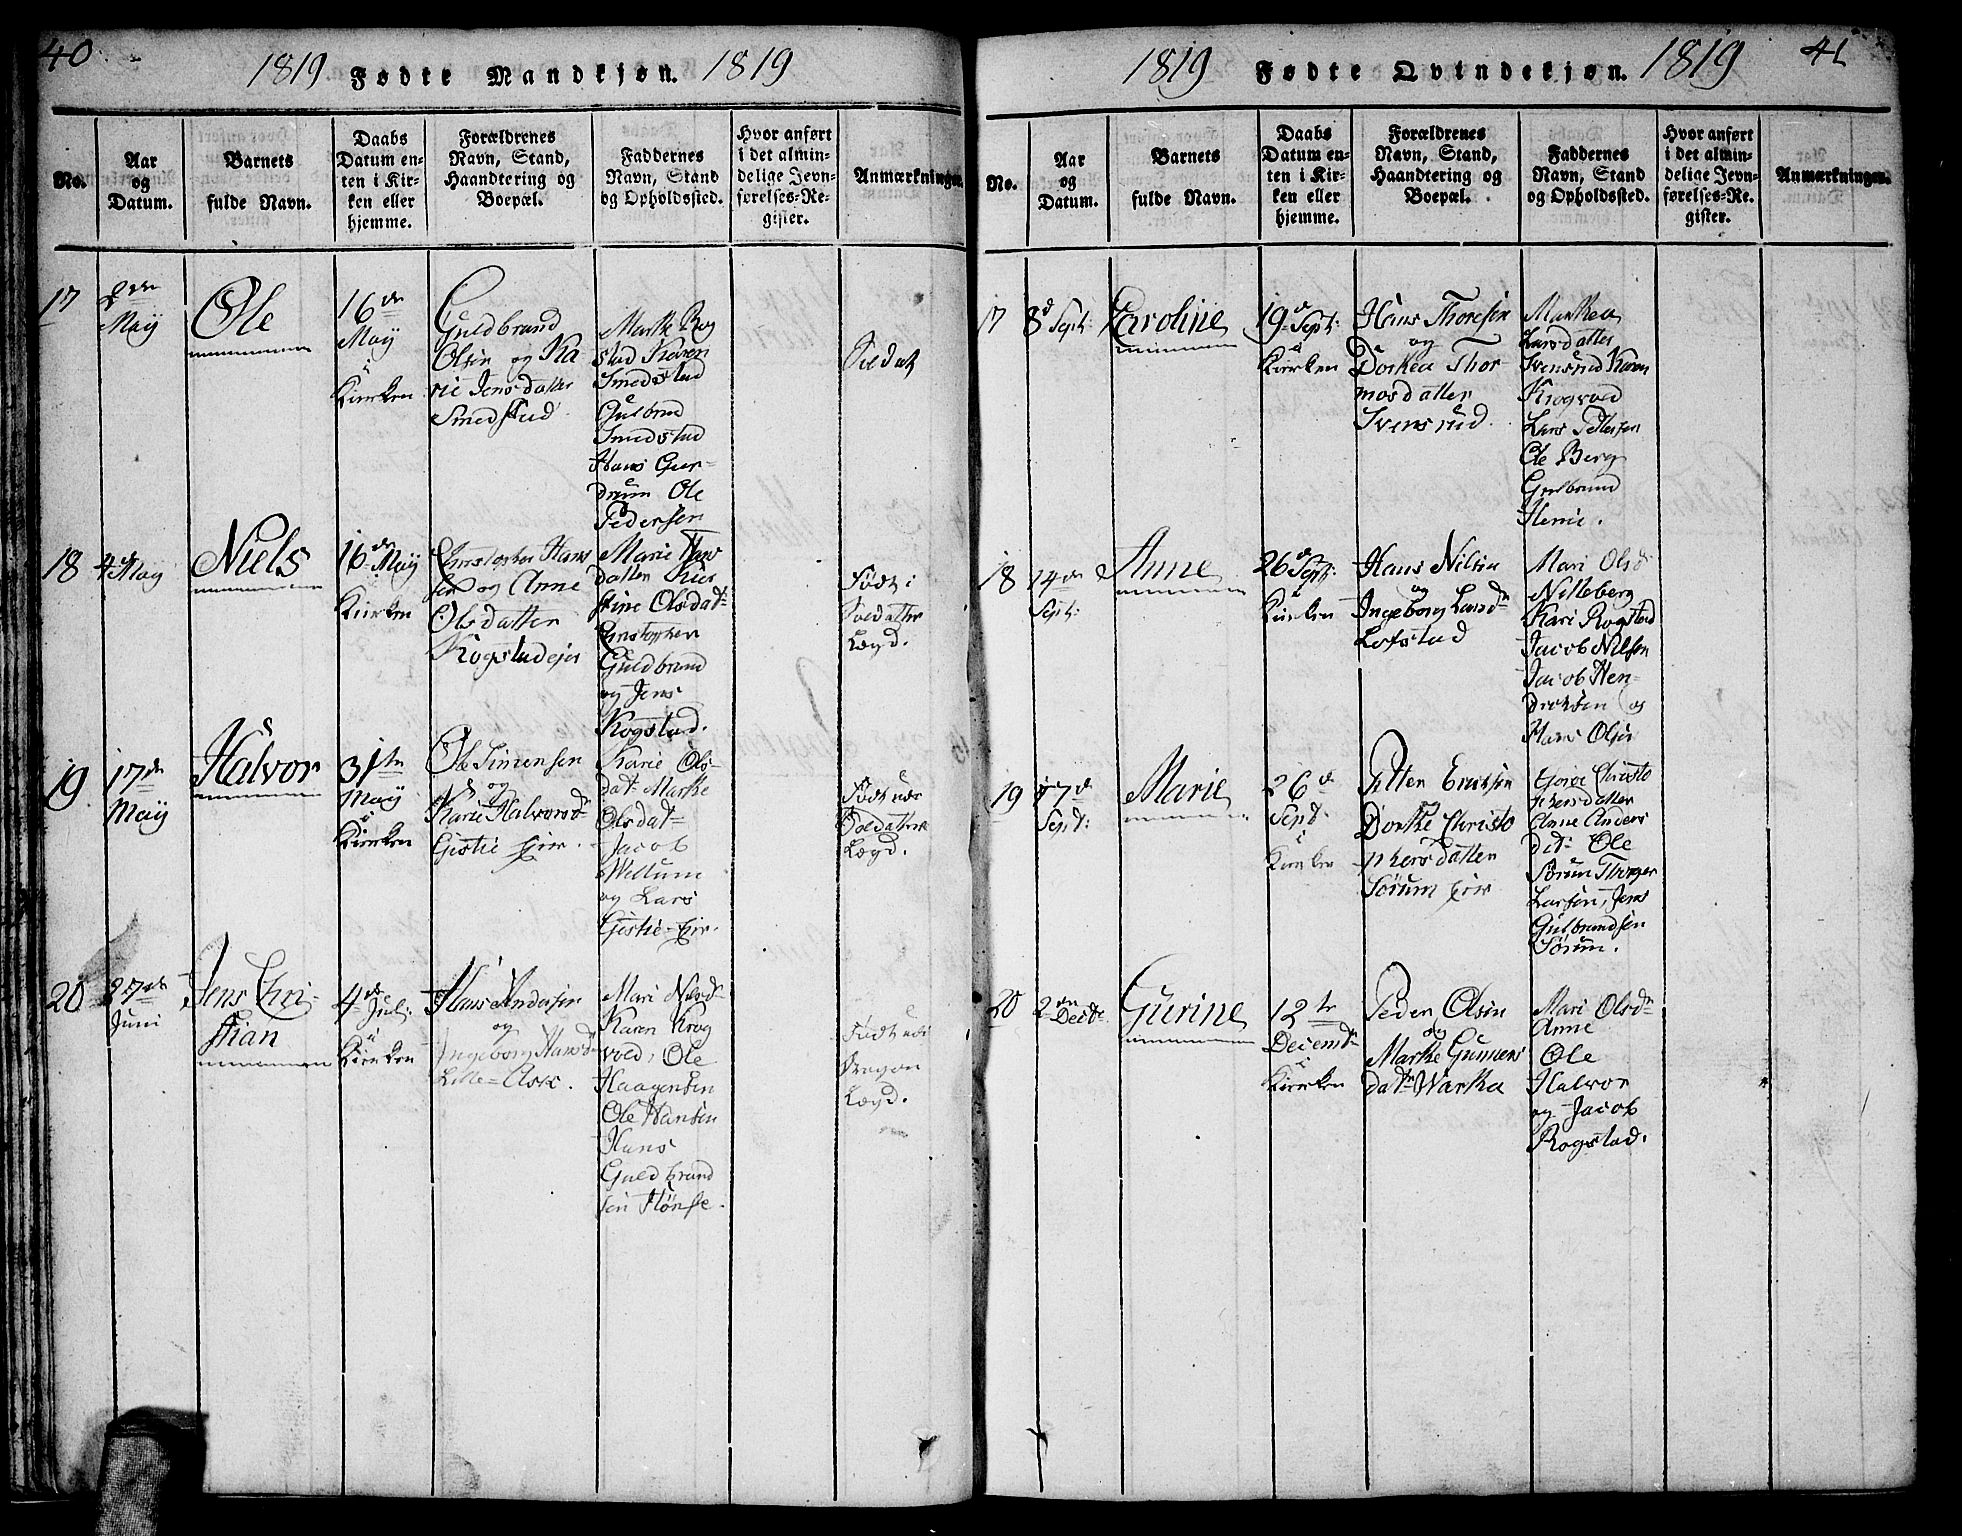 40
1819 Fødte Mandkjøn. 1819
No.
Aar
og
Datum.
Barnets
fulde Navn.
Daabs
Datum en-
ten i Kir-
ken eller
hjemme.
Forældrenes
Navn, Stand,
Haandtering og
Boepæl.
Faddernes
Navn, Stand
og Opholdssted.
Hvor anført
i det almin-
delige Jevn-
førelses-Re-
gister.
Anmærkninger.
17
2den
May
Ole
16de
May
i
Kierken
Guldbrand
Olsen og Ka
rie Jensdatter
Smedstad
Marthe Rog
stad Karen
Smedstad
Gulbrand
Smedstad
Hans Gur-
drum Ole
Pedersen
Soldat
18
4d May
Niels
16de May
i
Kierken
Christopher Hans
sen og Anne
Olsdatter
Rogstadejer
Marie Hans
datter Kier
stine Olsdat-
Christopher
Guldbrand
og Jens
Rogstad.
Født i
Soldatter
Lægd.
19
17de
May
Halvor
31te
May
i
Kierken
Ole Simensen
og
Karie Halvorsd
Gistie Eier.
Karie Ols-
dat- Marthe
Olsdat-
Jacob
Wellum
og Lars
Gistie-Eier.
Født udi
Soldatter
Lægd.
20
27de
Juni
Jens Chri-
stian
4de Juli
i
Kierken
Hans Andersen
og
Ingeborg Hansd
Lille-Ask.
Mari Nilsd
Karen Krog
vold, Ole
Haagensen
Ole Hansen
Hans
Guldbrand
sen Hønse.
Født udi
Dragon
Lægd.
41
1819 Fødte Qvindekjøn. 1819
No.
Aar
og
Datum.
Barnets
fulde Navn.
Daabs
Datum en-
ten i Kir-
ken eller
hjemme.
Forældrenes
Navn, Stand,
Haandtering og
Boepæl.
Faddernes
Navn, Stand
og Opholdssted.
Hvor anført
i det almin-
delige Jevn-
førelses-Re-
gister.
Anmærkninger.
17
8d Sept:
Caroline
19d Sept:
i
Kierken
Hans Thoresen
og
Dorthea Thor
mosdatter
Svensrud.
Marthea
Larsdatter
Svensrud Karen
Krogvold
Lars Pettersen
Ole Berg
Gulbrand
Henie.
18
14de
Sept:
Anne
26d Sept:
i
Kierken
Hans Nilsen
og
Ingeborg Larsd
Lofstad
Mari Olsd
Nilleberg
Kari Rogstad
Jacob Nilsen
Jacob Hen-
dreksen og
Hans Olsen
19
17de
Sept:
Marie
26d
Sept:
i
Kierken
Petter Eriksen
og
Dorthe Christo
phersdatter
Sørum Eier
Gorre Christo
phersdatter
Anne Anders
dt: Ole
Sørum Thorger
Larsen, Jens
Gulbrandsen
Sørum.
20
2den
Decbr
Gurine
12te
Decemb
i
Kierken
Peder Olsen
og
Marthe Gunners
datr Wartha
Mari Olsdr
Anne
Ole
Halvor
og Jacob
Rogstad.